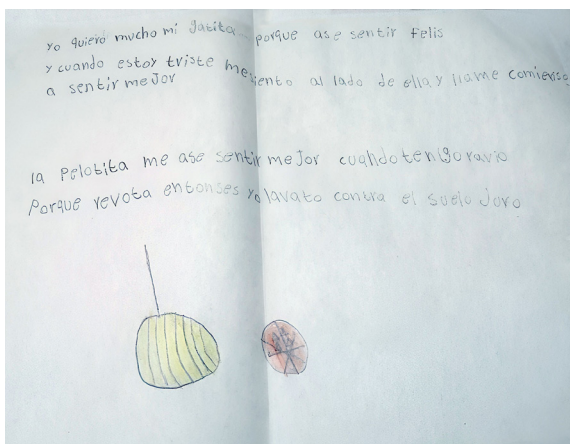 Yo quiero mucho mi gatita porque ase sentir felis
y cuando estoy triste mesiento al lado de ella y llame comienso
a sentir mejor
la pelotita me ase sentir mejor cuando tengo ravio
Porque revota entonses yo lavato contra el suelo juro